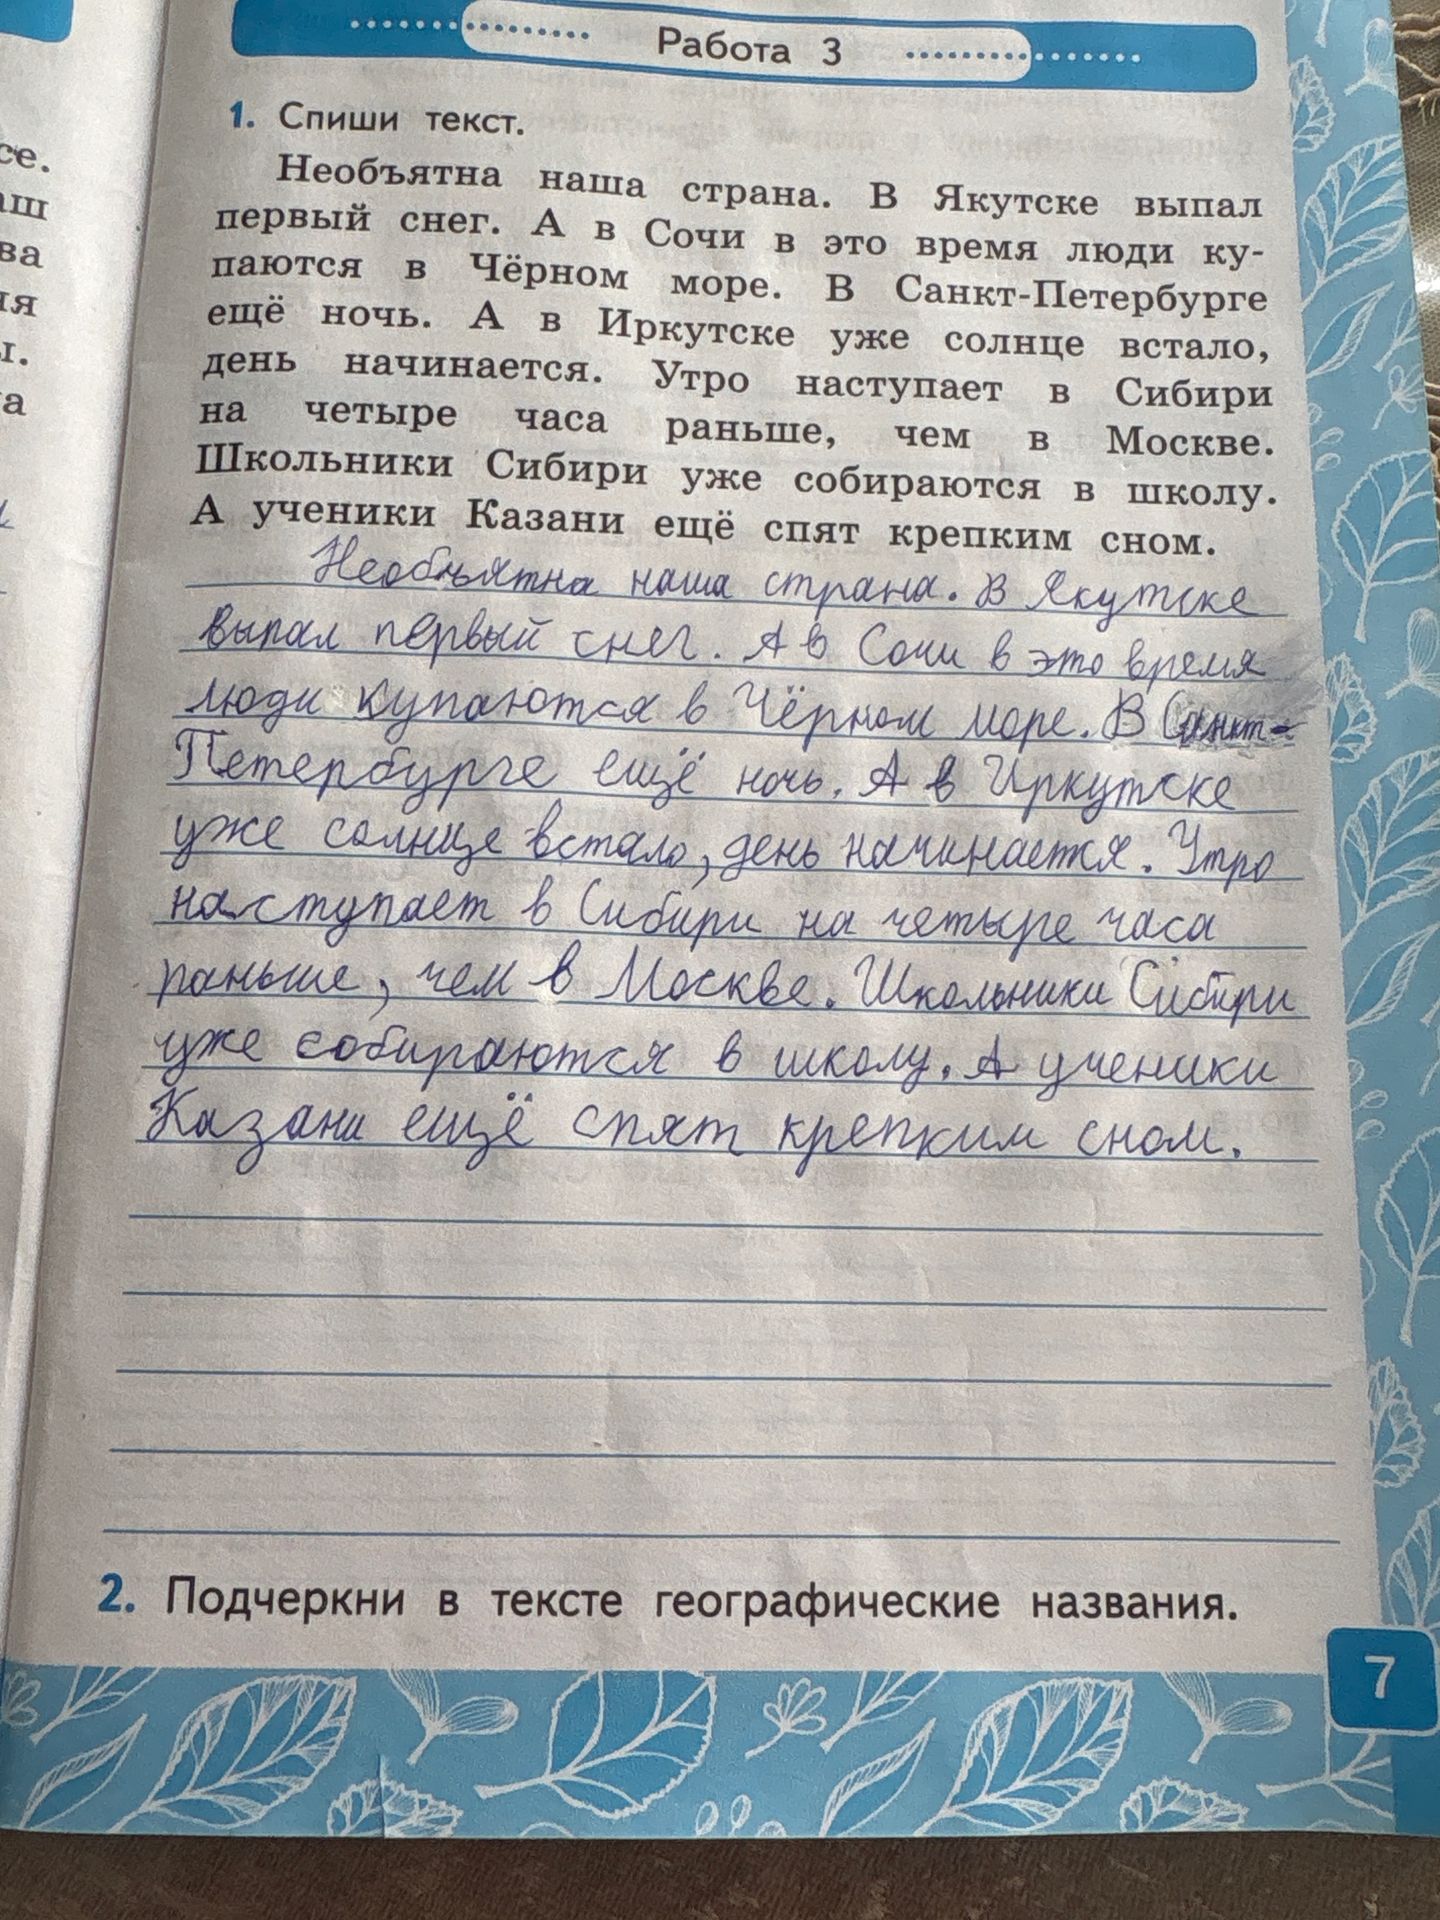 Работа 3
1. Спиши текст.
Необъятна наша страна. В Якутске выпал
первый снег. А в Сочи в это время люди ку-
паются в Чёрном море. В Санкт-Петербурге
ещё ночь. А в Иркутске уже солнце встало,
день начинается. Утро наступает в Сибири
на четыре часа раньше, чем в Москве.
Школьники Сибири уже собираются в школу.
А ученики Казани ещё спят крепким сном.
Необъятна наша страна. В Якутске
выпал первый снег. А в Сочи в это время
люди купаются в Чёрном море. В Санкт-
Петербурге ещё ночь. А в Иркутске
уже солнце встало, день начинается. Утро
наступает в Сибири на четыре часа
раньше, чем в Москве. Школьники Сибири
уже собираются в школу. А ученики
Казани ещё спят крепким сном.
2. Подчеркни в тексте географические названия.
7